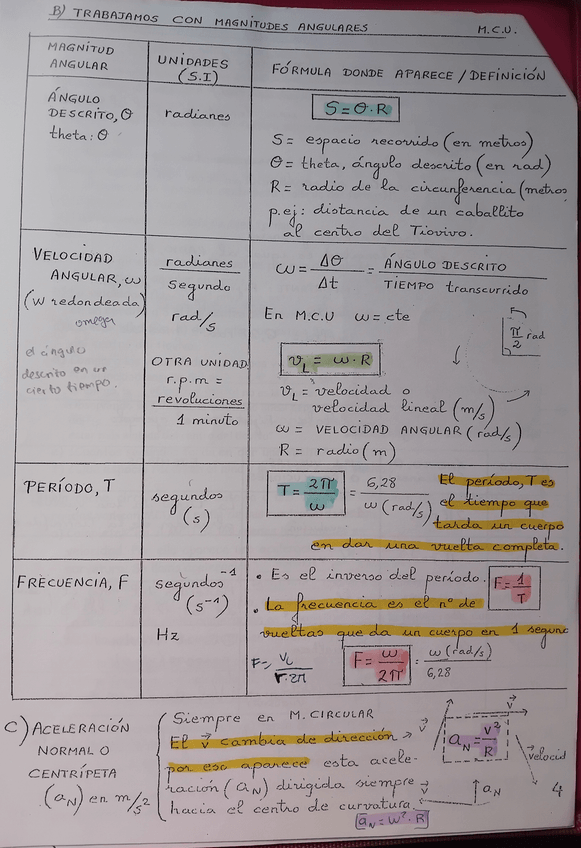 B) TRABAJAMOS CON MAGNITUDES ANGULARES M.C.U.
MAGNITUD
ANGULAR
UNIDADES
(S.I)
FÓRMULA DONDE APARECE / DEFINICIÓN
ÁNGULO
DESCRITO, θ
theta: θ
radianes
S = θ·R
S = espacio recorrido (en metros)
θ = theta, ángulo descrito (en rad)
R = radio de la circunferencia (metros
p.ej: distancia de un caballito
al centro del Tiovivo.
VELOCIDAD
ANGULAR, ω
(W redondeada)
omega
el ángulo
descrito en un
cierto tiempo.
radianes
segundo
rad/s
OTRA UNIDAD
r.p.m =
revoluciones
1 minuto
ω = Δθ/Δt = ÁNGULO DESCRITO / TIEMPO transcurrido
En M.C.U ω = cte
π/2 rad
v_L = ω·R
v_L = velocidad o
velocidad lineal (m/s)
ω = VELOCIDAD ANGULAR (rad/s)
R = radio (m)
PERÍODO, T
segundos
(s)
T = 2π/ω = 6,28/ω (rad/s)
El período, T es
el tiempo que
tarda un cuerpo
en dar una vuelta completa.
FRECUENCIA, F
segundos⁻¹
(s⁻¹)
Hz
• Es el inverso del período. F = 1/T
• La frecuencia es el nº de
vueltas que da un cuerpo en 1 segund
F = v_L/r·2π
F = ω/2π = ω (rad/s)/6,28
C) ACELERACIÓN
NORMAL O
CENTRÍPETA
(a_N) en m/s²
Siempre en M. CIRCULAR
El v⃗ cambia de dirección →
por eso aparece esta acele-
ración (a_N) dirigida siempre
hacia el centro de curvatura.
a_N = ω²·R
v⃗
v⃗
a_N = v²/R
v⃗
a_N
velocid
4